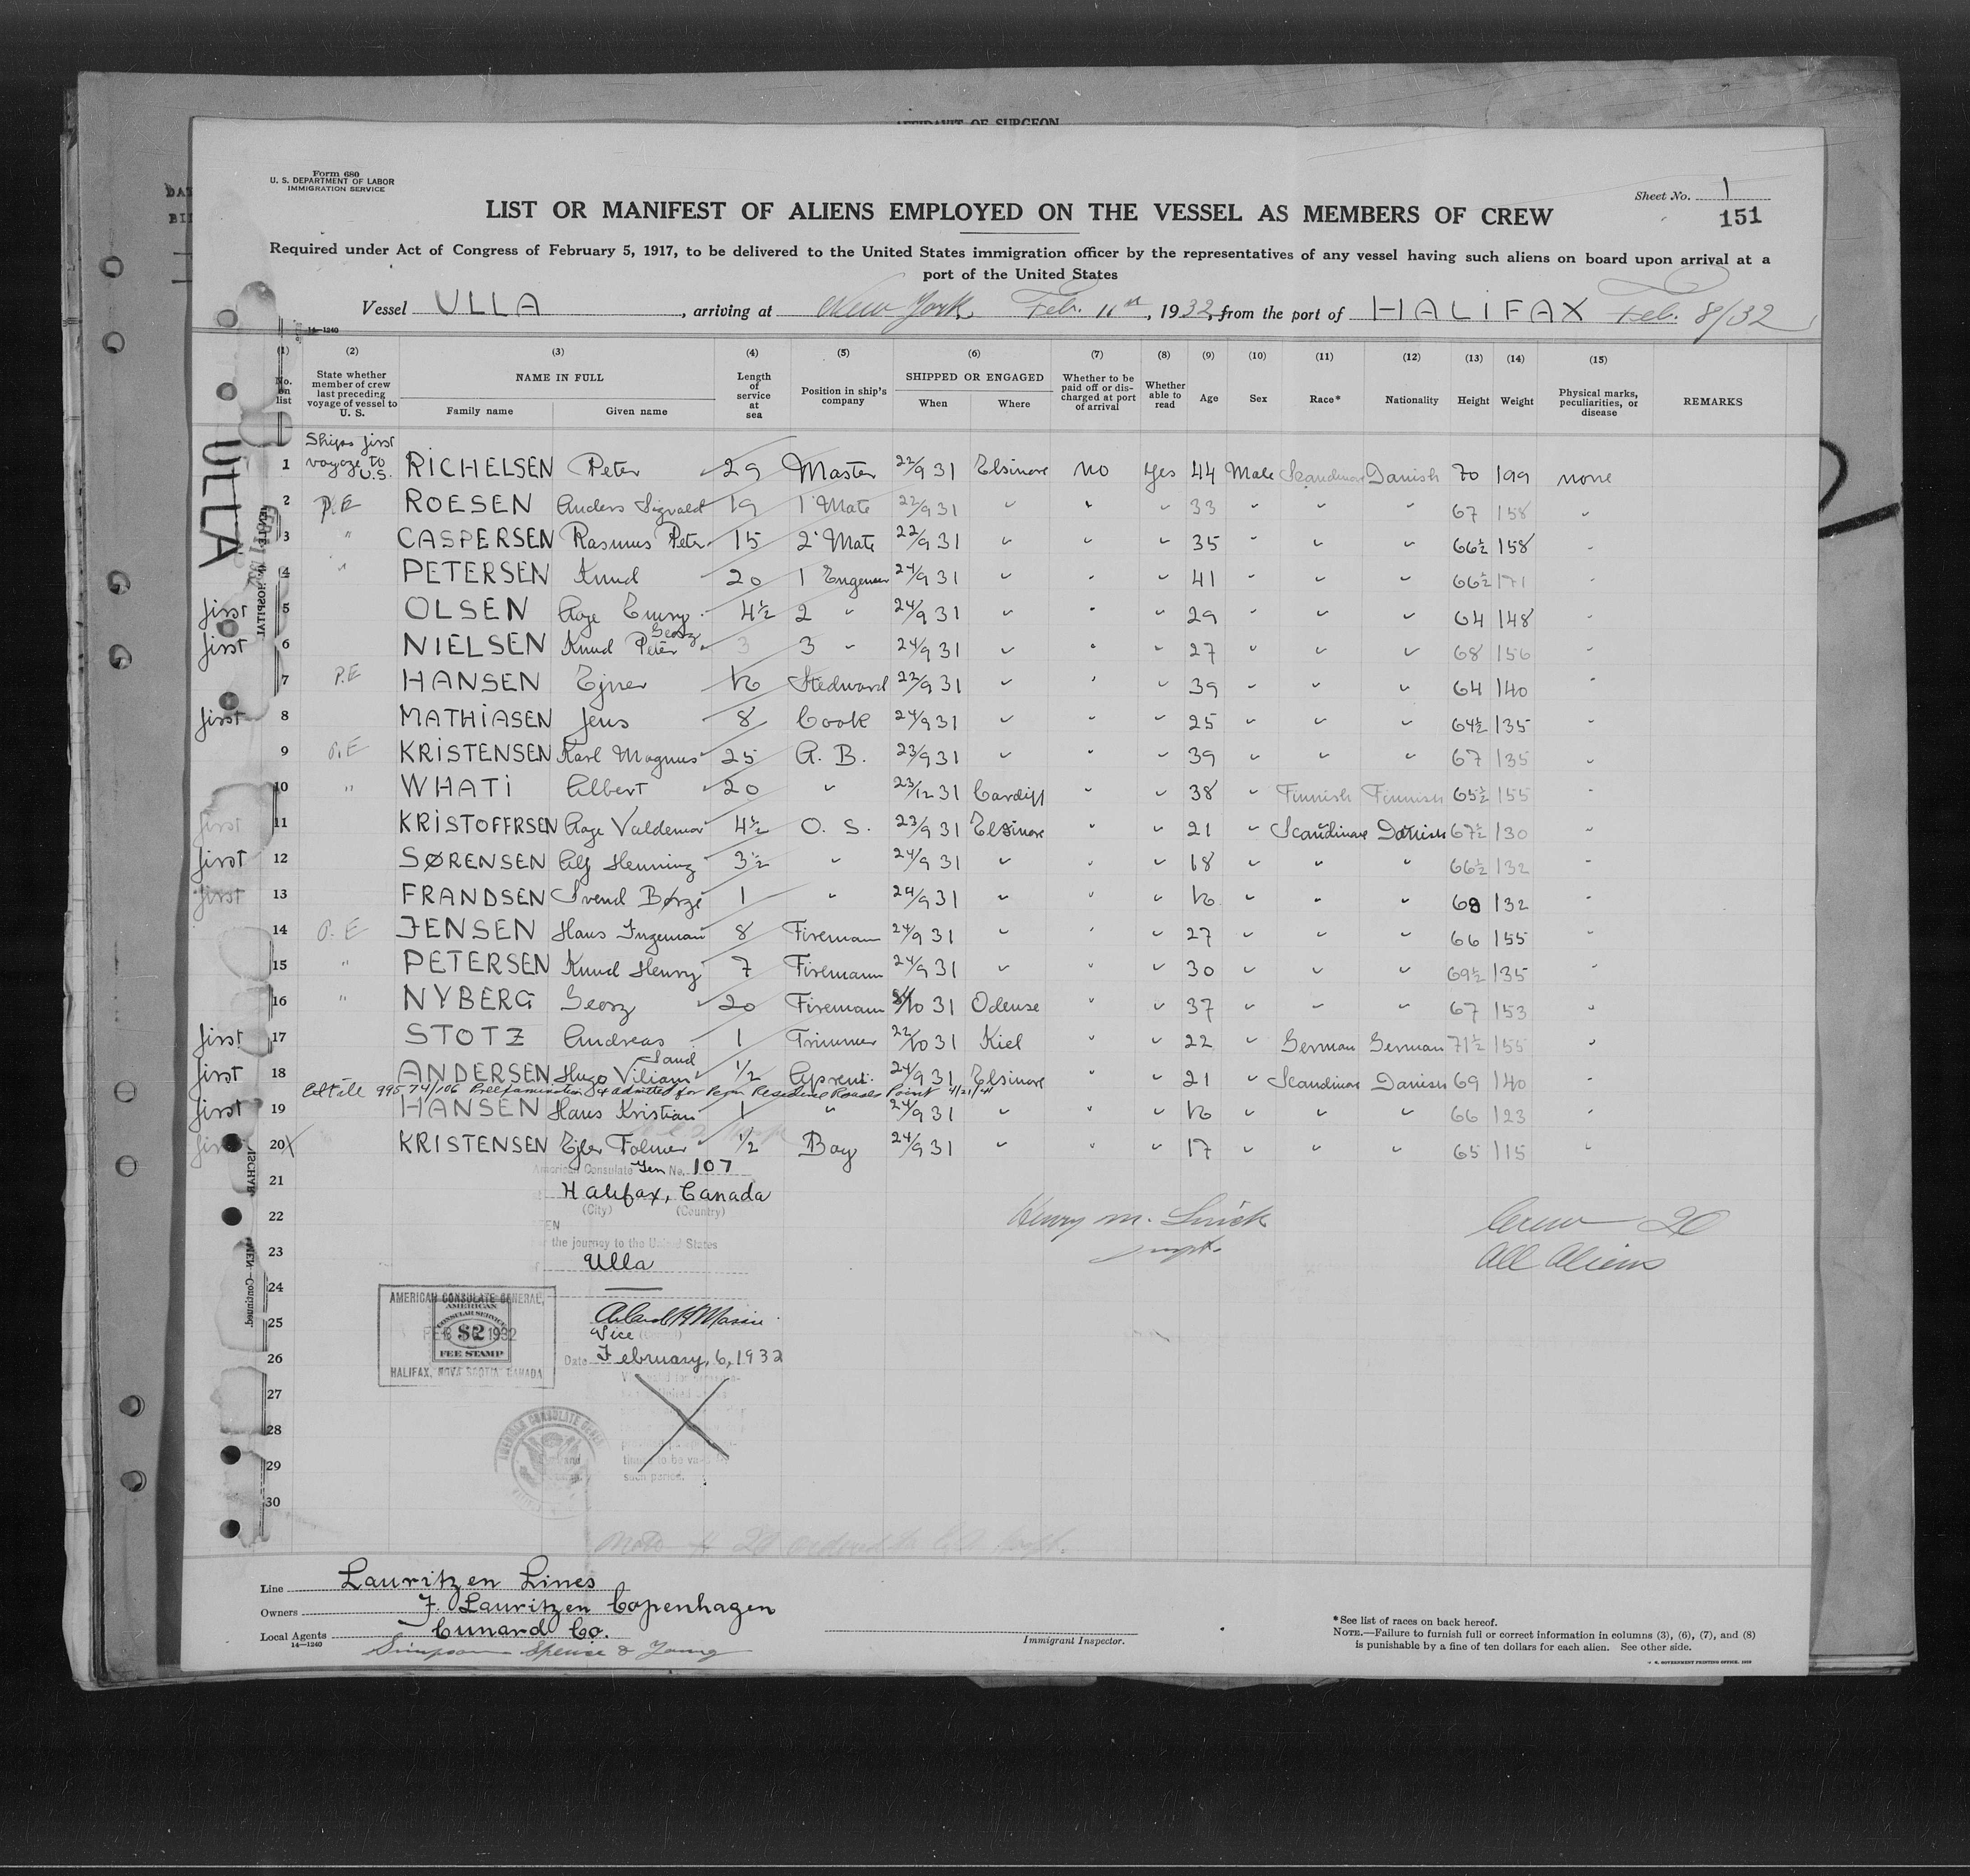 AFFIDAVIT OF SURGEON
Form 680
U. S. DEPARTMENT OF LABOR
IMMIGRATION SERVICE
Sheet No. 1
151
LIST OR MANIFEST OF ALIENS EMPLOYED ON THE VESSEL AS MEMBERS OF CREW
Required under Act of Congress of February 5, 1917, to be delivered to the United States immigration officer by the representatives of any vessel having such aliens on board upon arrival at a
port of the United States
Vessel ULLA, arriving at New York Feb. 11th, 1932, from the port of HALIFAX Feb. 8/32
14—1240
(1) (2) (3) (4) (5) (6) (7) (8) (9) (10) (11) (12) (13) (14) (15)
No. on list State whether member of crew last preceding voyage of vessel to U. S. NAME IN FULL Family name Given name Length of service at sea Position in ship's company SHIPPED OR ENGAGED When Where Whether to be paid off or discharged at port of arrival Whether able to read Age Sex Race* Nationality Height Weight Physical marks, peculiarities, or disease REMARKS
ULLA
Ships first voyage to U.S.
1 RICHELSEN Peter 29 Master 22/9 31 Elsinore no yes 44 Male Scandinav Danish 70 199 none
2 P.E ROESEN Anders Sigvald 19 1 Mate 22/9 31 " " " 33 " " " 67 158 "
3 " CASPERSEN Rasmus Peter 15 2 Mate 22/9 31 " " " 35 " " " 66½ 158 "
4 " PETERSEN Knud 20 1 Engeneer 24/9 31 " " " 41 " " " 66½ 171 "
first 5 OLSEN Aage Emry 4½ 2 " 24/9 31 " " " 29 " " " 64 148 "
first 6 NIELSEN Knud Peter Georg 3 3 " 24/9 31 " " " 27 " " " 68 156 "
7 P.E HANSEN Ejner 16 Stedward 22/9 31 " " " 39 " " " 64 140 "
first 8 MATHIASEN Jens 8 Cook 24/9 31 " " " 25 " " " 64½ 135
9 P.E KRISTENSEN Karl Magnus 25 A. B. 23/9 31 " " " 39 " " " 67 135 "
10 " WHATI Albert 20 " 23/12 31 Cardiff " " 38 " Finnish Finnish 65½ 155 "
first 11 KRISTOFFRSEN Aage Valdemar 4½ O. S. 23/9 31 Elsinore " " 21 " Scandinav Danish 67½ 130 "
first 12 SØRENSEN Alf Henning 3½ " 24/9 31 " " " 18 " " " 66½ 132 "
first 13 FRANDSEN Svend Børge 1 " 24/9 31 " " " 16 " " " 68 132 "
14 P.E JENSEN Hans Ingeman 8 Firemann 24/9 31 " " " 27 " " " 66 155 "
15 " PETERSEN Knud Henry 7 Firemann 24/9 31 " " " 30 " " " 69½ 135 "
16 " NYBERG Georg 20 Firemann 24/10 31 Odense " " 37 " " " 67 153 "
first 17 STOTZ Andreas 1 Trimmer 22/10 31 Kiel " " 22 " German German 71½ 155 "
first 18 ANDERSEN Hugo Viliam Sand ½ Aprent. 24/9 31 Elsinore " " 21 " Scandinav Danish 69 140 "
99574/106 Preexamination & admitted for Perm Residence Rouses Point 4/21/41
first 19 HANSEN Hans Kristian 1 " 24/9 31 " " " 16 " " " 66 123 "
first 20 X KRISTENSEN Ejler Folmer ½ Boy 24/9 31 " " " 17 " " " 65 115 "
American Consulate Gen No. 107
21
Halifax, Canada
(City) (Country)
22
Henry M. Linick
Crew 20
the journey to the United States
Inspt.
23
Ulla
All Aliens
24
AMERICAN CONSULATE GENERAL,
AMERICAN CONSULAR SERVICE
$2
FEB 6 1932
FEE STAMP
HALIFAX, NOVA SCOTIA CANADA
25
Vice
26
Date February, 6, 1932
27
28
AMERICAN CONSULATE GENERAL
29
such period.
30
Line Lauritzen Lines
Owners J. Lauritzen Copenhagen
Local Agents Cunard Co.
14—1240
Simpson Spence & Young
Immigrant Inspector.
*See list of races on back hereof.
NOTE.—Failure to furnish full or correct information in columns (3), (6), (7), and (8)
is punishable by a fine of ten dollars for each alien. See other side.
U. S. GOVERNMENT PRINTING OFFICE